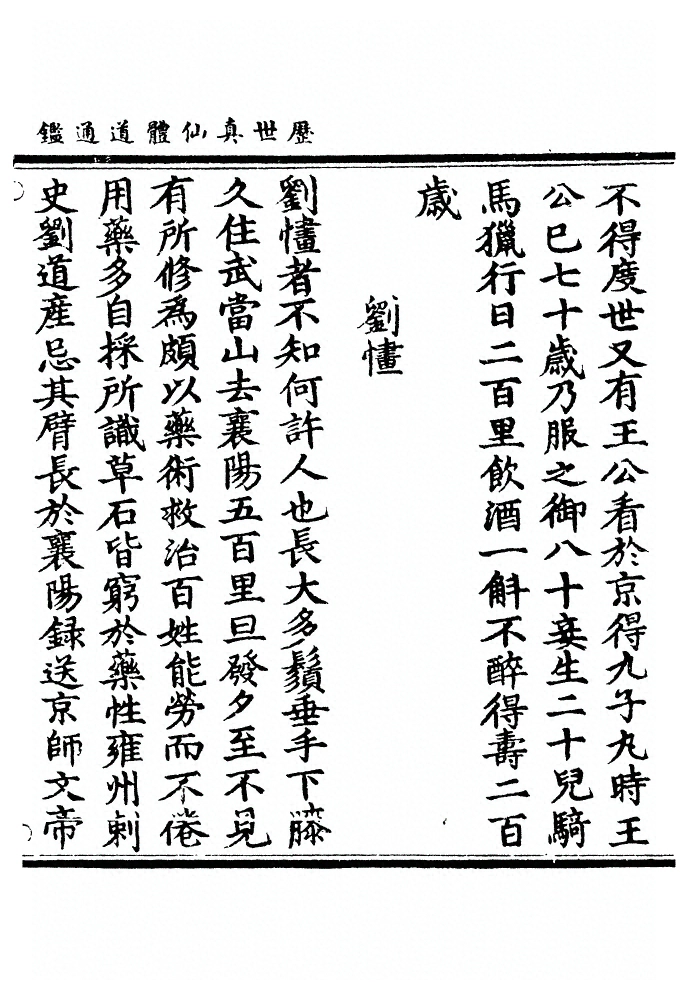 歷世真仙體道通鑑
不得度世又有王公看於京得九子丸時王
公已七十歲乃服之御八十妾生二十兒騎
馬獵行日二百里飲酒一斛不醉得壽二百
歲
劉㦬
劉㦬者不知何許人也長大多鬚垂手下膝
久住武當山去襄陽五百里旦發夕至不見
有所修為頗以藥術救治百姓能勞而不倦
用藥多自採所識草石皆窮於藥性雍州刺
史劉道產忌其臂長於襄陽録送京師文帝